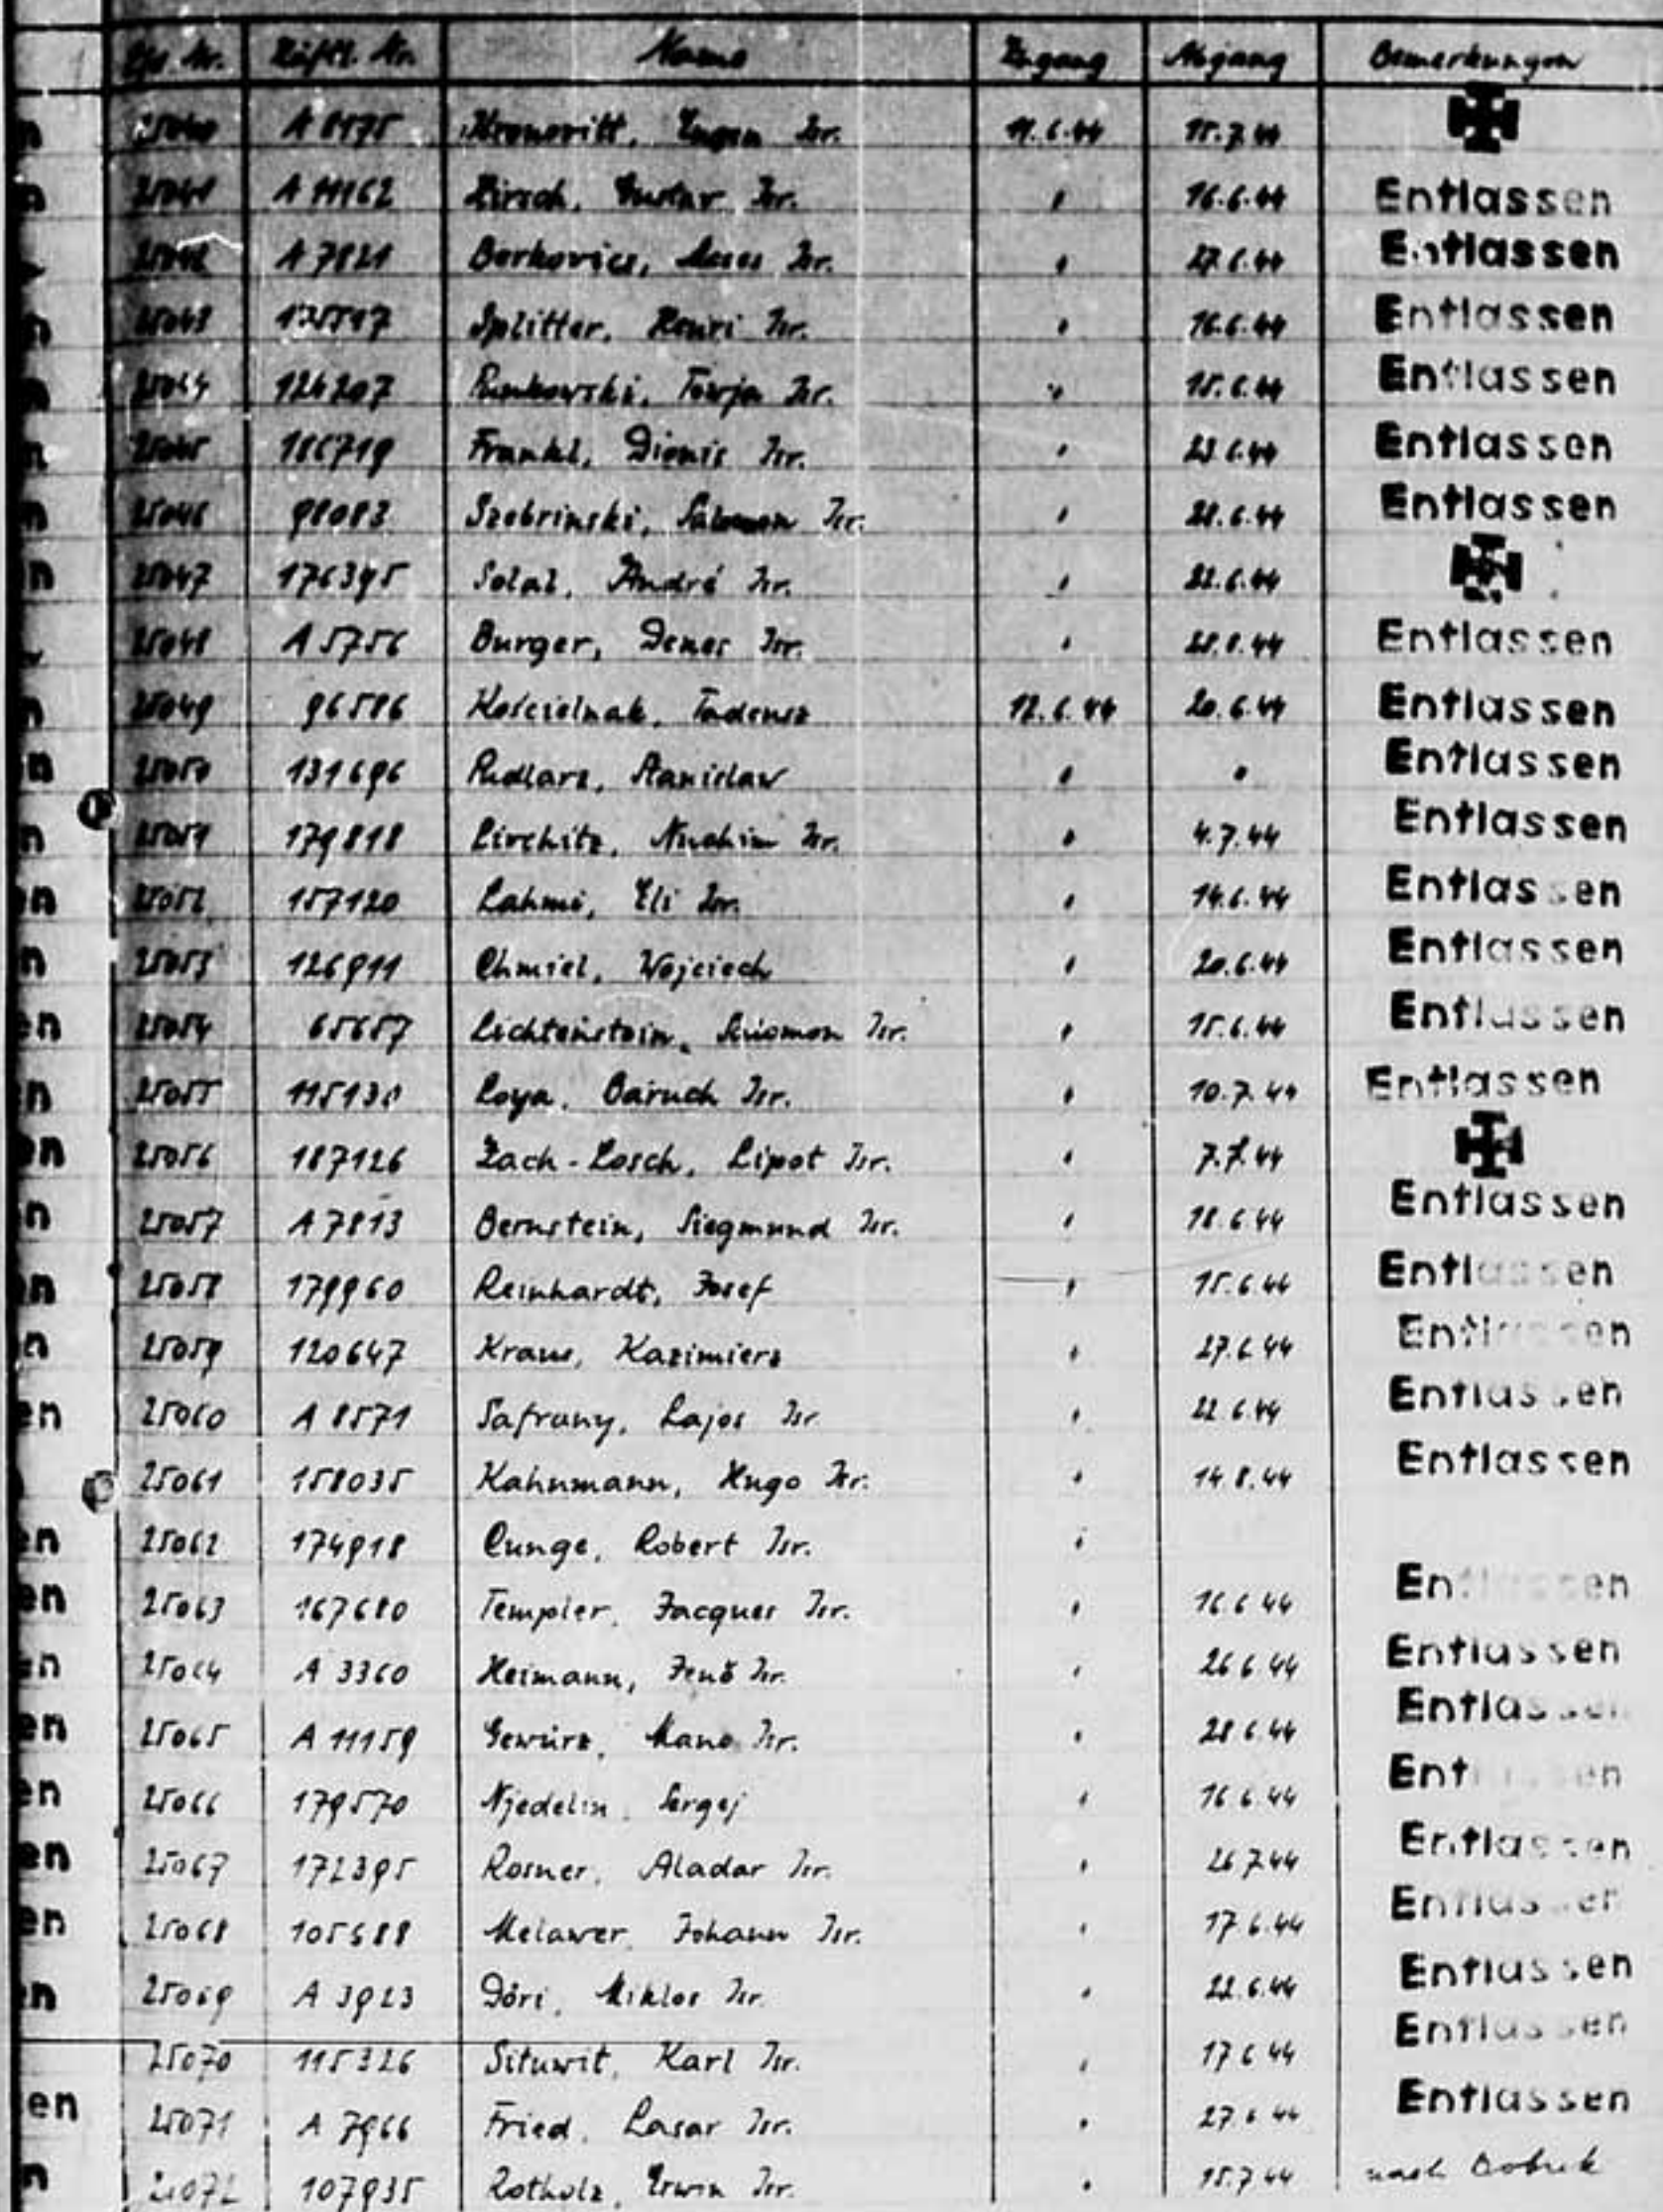 Lfd. Nr. Häftl. Nr. Name Zugang Abgang Bemerkungen
25040 A 8575 Eugen Isr. 11.6.44 15.7.44
25041 A 11162 Hirsch, Gustav Isr. " 16.6.44 Entlassen
25042 A 7821 Berkovics, Moses Isr. " 27.6.44 Entlassen
25043 Splitter, Henri Isr. " 16.6.44 Entlassen
25044 124207 Isr. " 15.6.44 Entlassen
25045 186719 Frankl, Dionis Isr. " 23.6.44 Entlassen
25046 98083 Szebrinski, Salomon Isr. " 28.6.44 Entlassen
25047 176395 Solal, André Isr. " 22.6.44
25048 A 5756 Burger, Denes Isr. " 28.8.44 Entlassen
25049 96586 Kościelnak, Tadeusz 12.6.44 20.6.44 Entlassen
25050 131696 Pudlarz, Stanislaw " " Entlassen
25051 179818 Livchitz, Nuchim Isr. " 4.7.44 Entlassen
25052 157120 Lahmi, Eli Isr. " 14.6.44 Entlassen
25053 126911 Chmiel, Wojciech " 20.6.44 Entlassen
25054 65657 Lichtenstein, Salomon Isr. " 15.6.44 Entlassen
25055 115130 Loya, Baruch Isr. " 10.7.44 Entlassen
25056 187126 Zach-Losch, Lipot Isr. " 7.7.44
25057 A 7813 Bernstein, Siegmund Isr. " 18.6.44 Entlassen
25058 179960 Reinhardt, Josef " 15.6.44 Entlassen
25059 120647 Kraus, Kazimierz " 27.6.44 Entlassen
25060 A 8571 Safrany, Lajos Isr. " 22.6.44 Entlassen
25061 158035 Kahnmann, Hugo Isr. " 14.8.44 Entlassen
25062 174918 Cunge, Robert Isr. "
25063 167680 Templer, Jacques Isr. " 16.6.44 Entlassen
25064 A 3360 Heimann, Jenö Isr. " 26.6.44 Entlassen
25065 A 11159 Gewürz, Mano Isr. " 28.6.44 Entlassen
25066 179570 Njedelin, Sergej " 16.6.44 Entlassen
25067 172395 Rosner, Aladar Isr. " 26.7.44 Entlassen
25068 105688 Melawer, Johann Isr. " 17.6.44 Entlassen
25069 A 3923 Döri, Miklos Isr. " 22.6.44 Entlassen
25070 115326 Situwit, Karl Isr. " 17.6.44 Entlassen
25071 A 7966 Fried, Lasar Isr. " 27.6.44 Entlassen
25072 107935 Rotholz, Erwin Isr. " 15.7.44 nach Bobrek